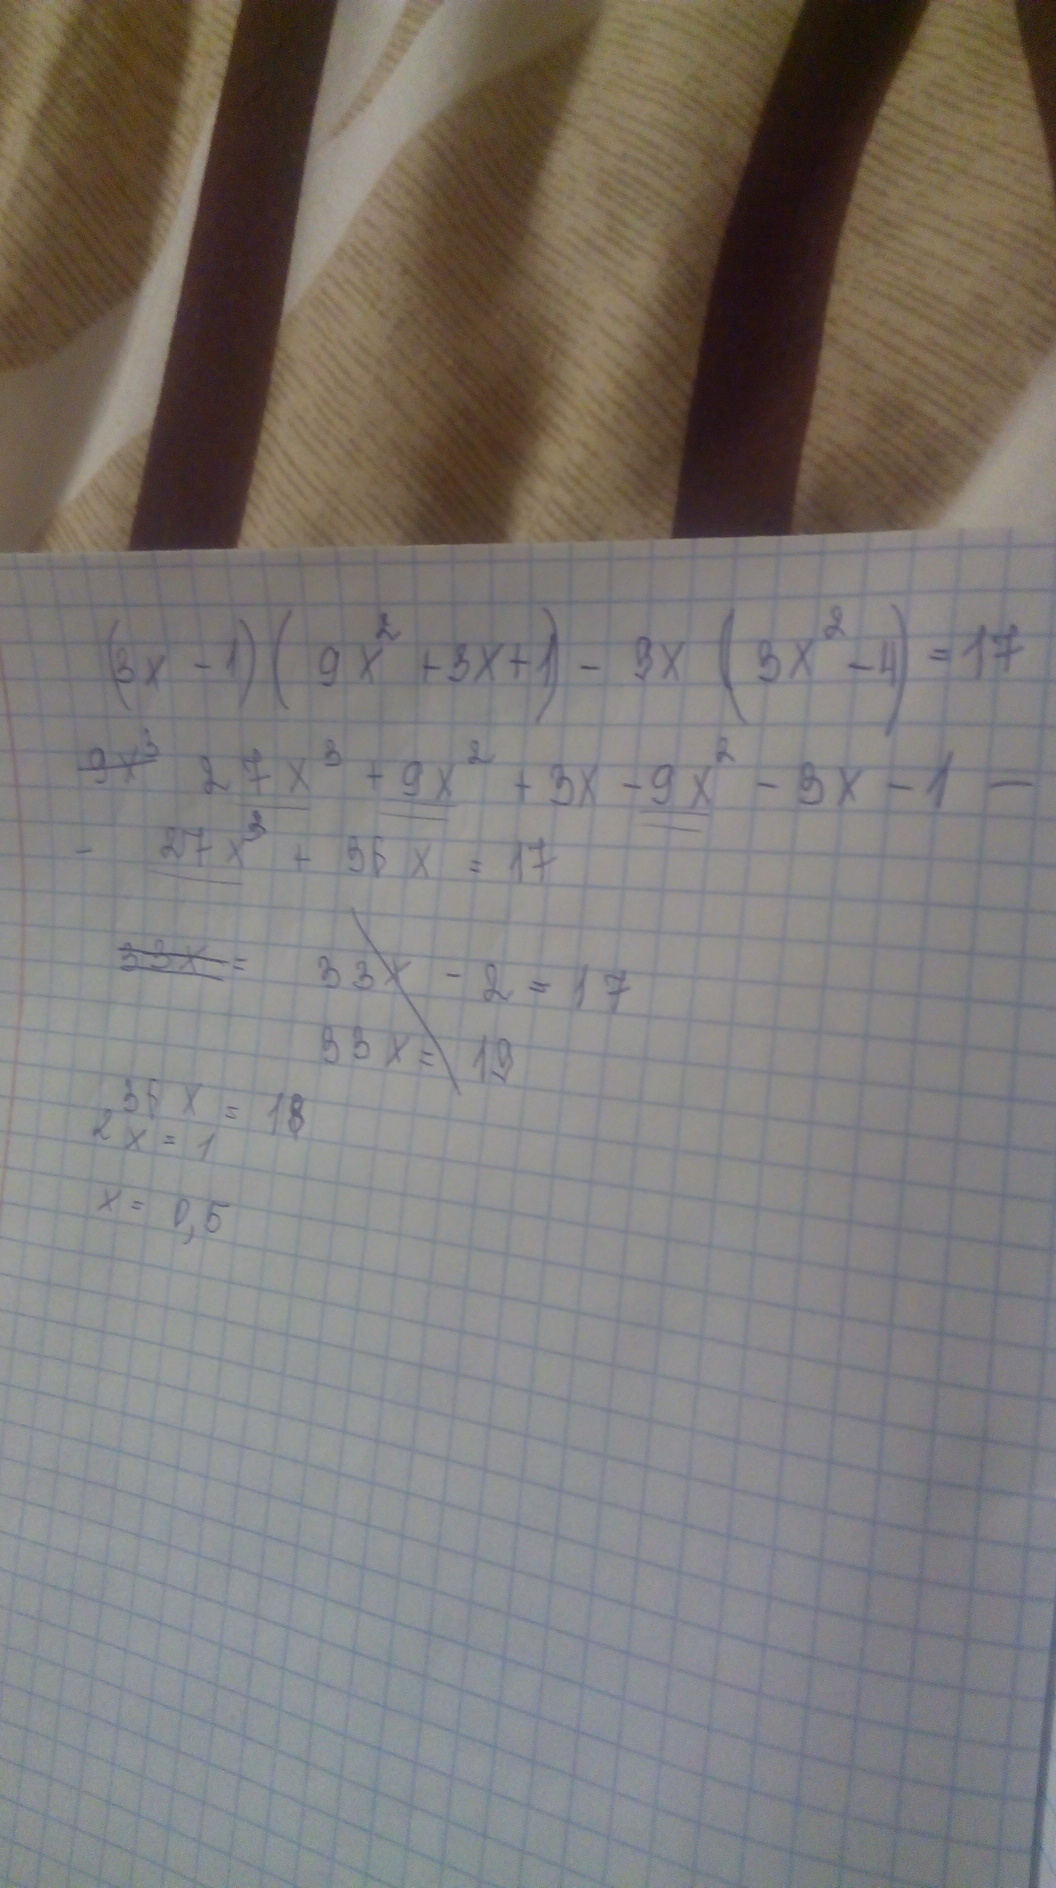 (3x - 1)(9x² + 3x + 1) - 3x (3x² - 4) = 17
9x³ 27x³ + 9x² + 3x - 9x² - 3x - 1 -
- 27x³ + 36x = 17
33x = 33x - 2 = 17
33x = 19
36x = 18
2x = 1
x = 0,5